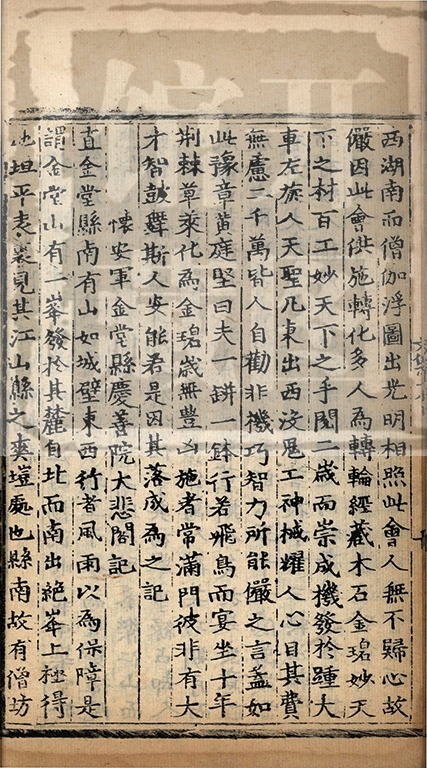 西湖南而僧伽浮圖出光明相照此會人無不歸心故
儼因此會供施轉化多人為轉輪經藏木石金碧妙天
下之材百工妙天下之手閱二歲而崇成機發於踵大
車左旋人天聖凡東出西沒鬼工神械耀人心目其費
無慮二千萬皆人自勸非機巧智力所能儼之言蓋如
此豫章黃庭堅曰夫一缾一鉢行若飛鳥而宴坐十年
荆棘草萊化為金碧歲無豊凶施者常滿門彼非有大
才智鼓舞斯人安能若是因其落成為之記
懷安軍金堂縣慶善院大悲閣記
直金堂縣南有山如城壁東西行者風雨以為保障是
謂金堂山有一峯發於其麓自北而南出絕峯上極得
地坦平袤見其江山縣之爽塏處也縣南故有僧坊